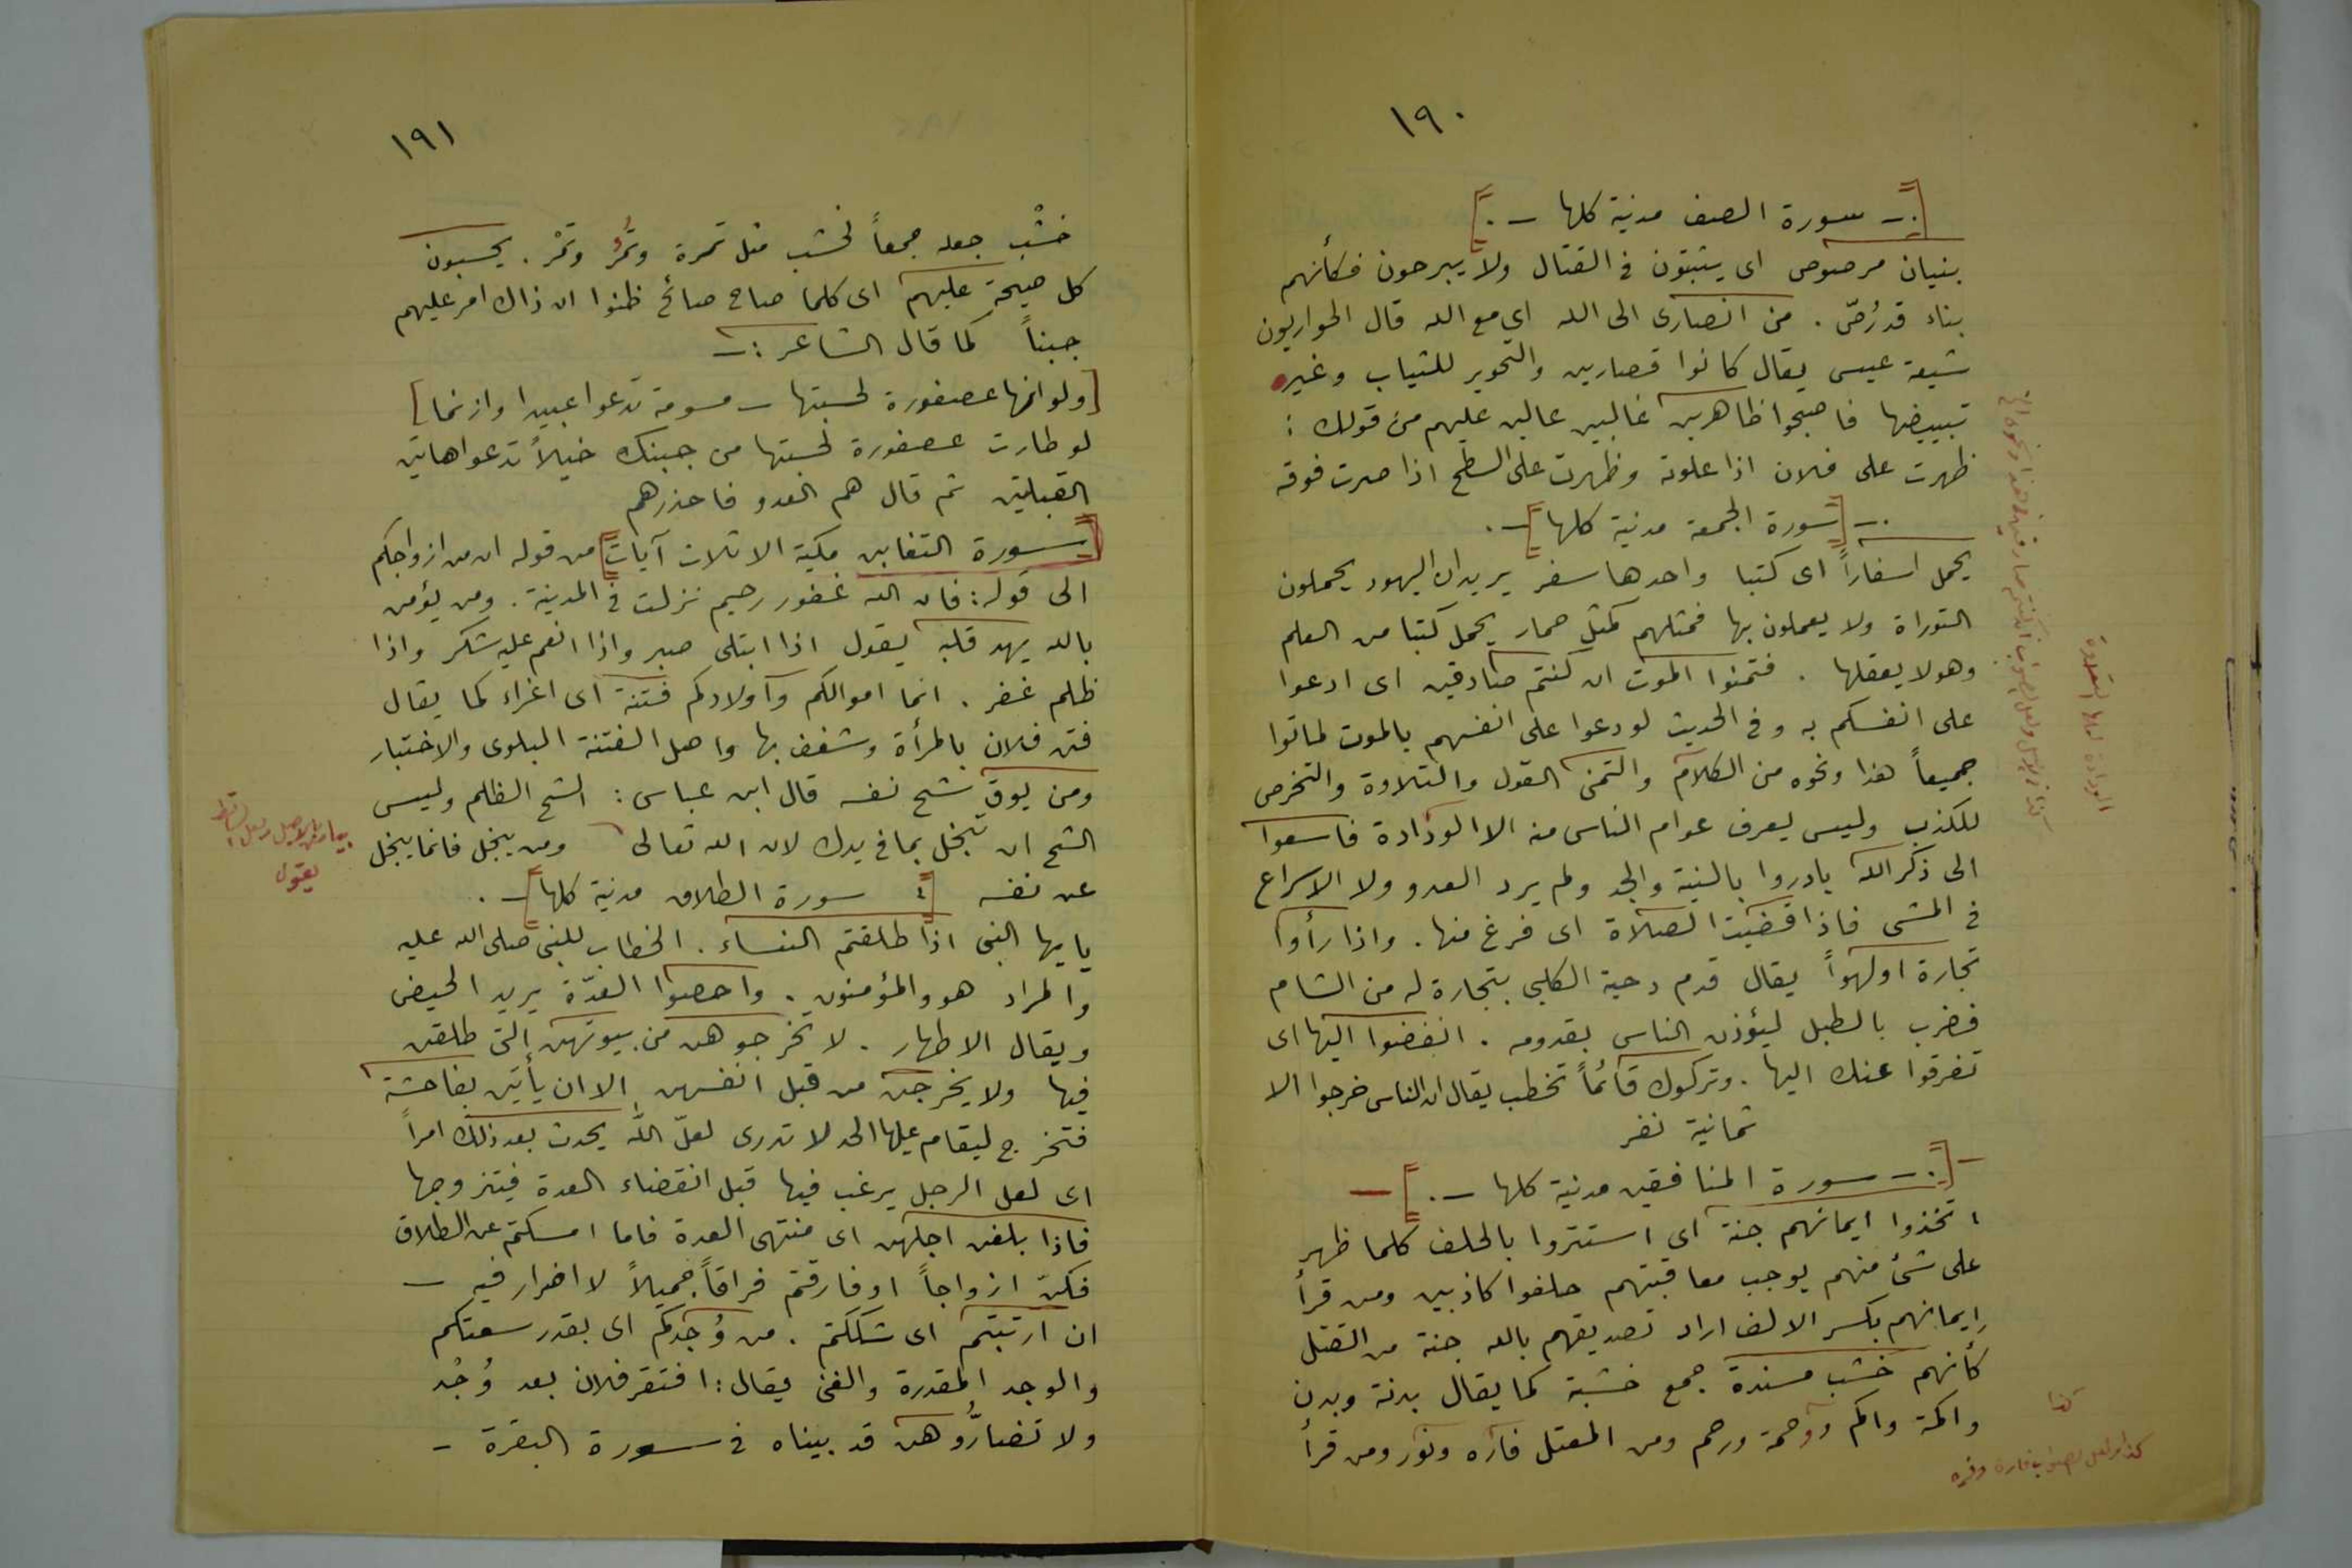 ١٩٠
[.- سورة الصف مدنية كلها -.]
بنيان مرصوص اى يثبتون فى القتال ولا يبرحون فكأنهم
بناء قد رُصّ . من انصارى الى الله اي مع الله قال الحواريون
شيعة عيسى يقال كانوا قصارين والتحوير للثياب وغيره
تبييضها فاصبحوا ظاهرين غالبين عالين عليهم من قولك :
ظهرت على فلان اذا علوته وظهرت على السطح اذا صرت فوقه
.- [سورة الجمعة مدنية كلها] -.
يحمل اسفاراً اى كتبا واحدها سفر يريد ان اليهود يحملون
التوراة ولا يعملون بها فمثلهم كمثل حمار يحمل كتبا من العلم
وهو لا يعقلها . فتمنوا الموت ان كنتم صادقين اى ادعوا
على انفسكم به وفى الحديث لو دعوا على انفسهم بالموت لماتوا
جميعاً هذا ونحوه من الكلام والتمنى القول والتلاوة والتخرص
للكذب وليس يعرف عوام الناس منه الا الودادة فاسعوا
الى ذكر الله بادروا بالنية والجد ولم يرد العدو ولا الاسراع
فى المشى فاذا قضيت الصلاة اى فرغ منها . واذا رأوا
تجارة او لهواً يقال قدم دحية الكلبي بتجارة له من الشام
فضرب بالطبل ليؤذن الناس بقدومه . انفضوا اليها اى
تفرقوا عنك اليها . وتركوك قائماً تخطب يقال ان الناس خرجوا الا
ثمانية نفر
- [.- سورة المنافقين مدنية كلها -.] -
اتخذوا ايمانهم جنة اى استتروا بالحلف كلما ظهر
على شئ منهم يوجب معاقبتهم حلفوا كاذبين ومن قرأ
إيمانهم بكسر الالف اراد تصديقهم بالله جنة من القتل
كأنهم خشب مسندة جمع خشبة كما يقال بدنة وبدن
واكمة واكم ورحمة ورحم ومن المعتل فاره ونور ومن قرأ
كذا
١٩١
خشْب جعله جمعاً لخشب مثل ثمرة وثمُر وثمْر . يحسبون
كل صيحة عليهم اى كلما صاح صائح ظنوا ان ذاك امر عليهم
جبناً كما قال الشاعر :-
[ولو انها عصفورة لحسبتها - مسومة تدعوا عبيدا وازنما]
لو طارت عصفورة لحسبتها من جبنك خيلاً تدعوا هاتين
القبيلتين ثم قال هم العدو فاحذرهم
[سورة التغابن مكية الا ثلاث آيات] من قوله ان من ازواجكم
الى قوله : فان الله غفور رحيم نزلت فى المدينة . ومن يؤمن
بالله يهد قلبه يقول اذا ابتلى صبر واذا انعم عليه شكر واذا
ظلم غفر . انما اموالكم واولادكم فتنة اى اغراء كما يقال
فتن فلان بالمرأة وشغف بها واصل الفتنة البلوى والاختبار
ومن يوق شح نفسه قال ابن عباس : الشح الظلم وليس
الشح ان تبخل بما فى يدك لان الله تعالى ومن يبخل فانما يبخل
يقول
عن نفسه [: سورة الطلاق مدنية كلها] -.
يايها النبى اذا طلقتم النساء . الخطاب للنبى صلى الله عليه
والمراد هو والمؤمنون . واحصوا العدّة يريد الحيض
ويقال الاطهار . لا تخرجوهن من بيوتهن التى طلقن
فيها ولا يخرجن من قبل انفسهن الا ان يأتين بفاحشة
فتخرج ليقام عليها الحد لا تدرى لعلّ الله يحدث بعد ذلك امراً
اى لعل الرجل يرغب فيها قبل انقضاء العدة فيتزوجها
فاذا بلغن اجلهن اى منتهى العدة فاما امسكتم عن الطلاق
فكنّ ازواجاً او فارقتم فراقاً جميلاً لا اضرار فيه -
ان ارتبتم اى شككتم . من وُجدكم اى بقدر سعتكم
والوجد المقدرة والغنى يقال : افتقر فلان بعد وُجْد
ولا تضارُّوهن قد بيناه فى سورة البقرة -